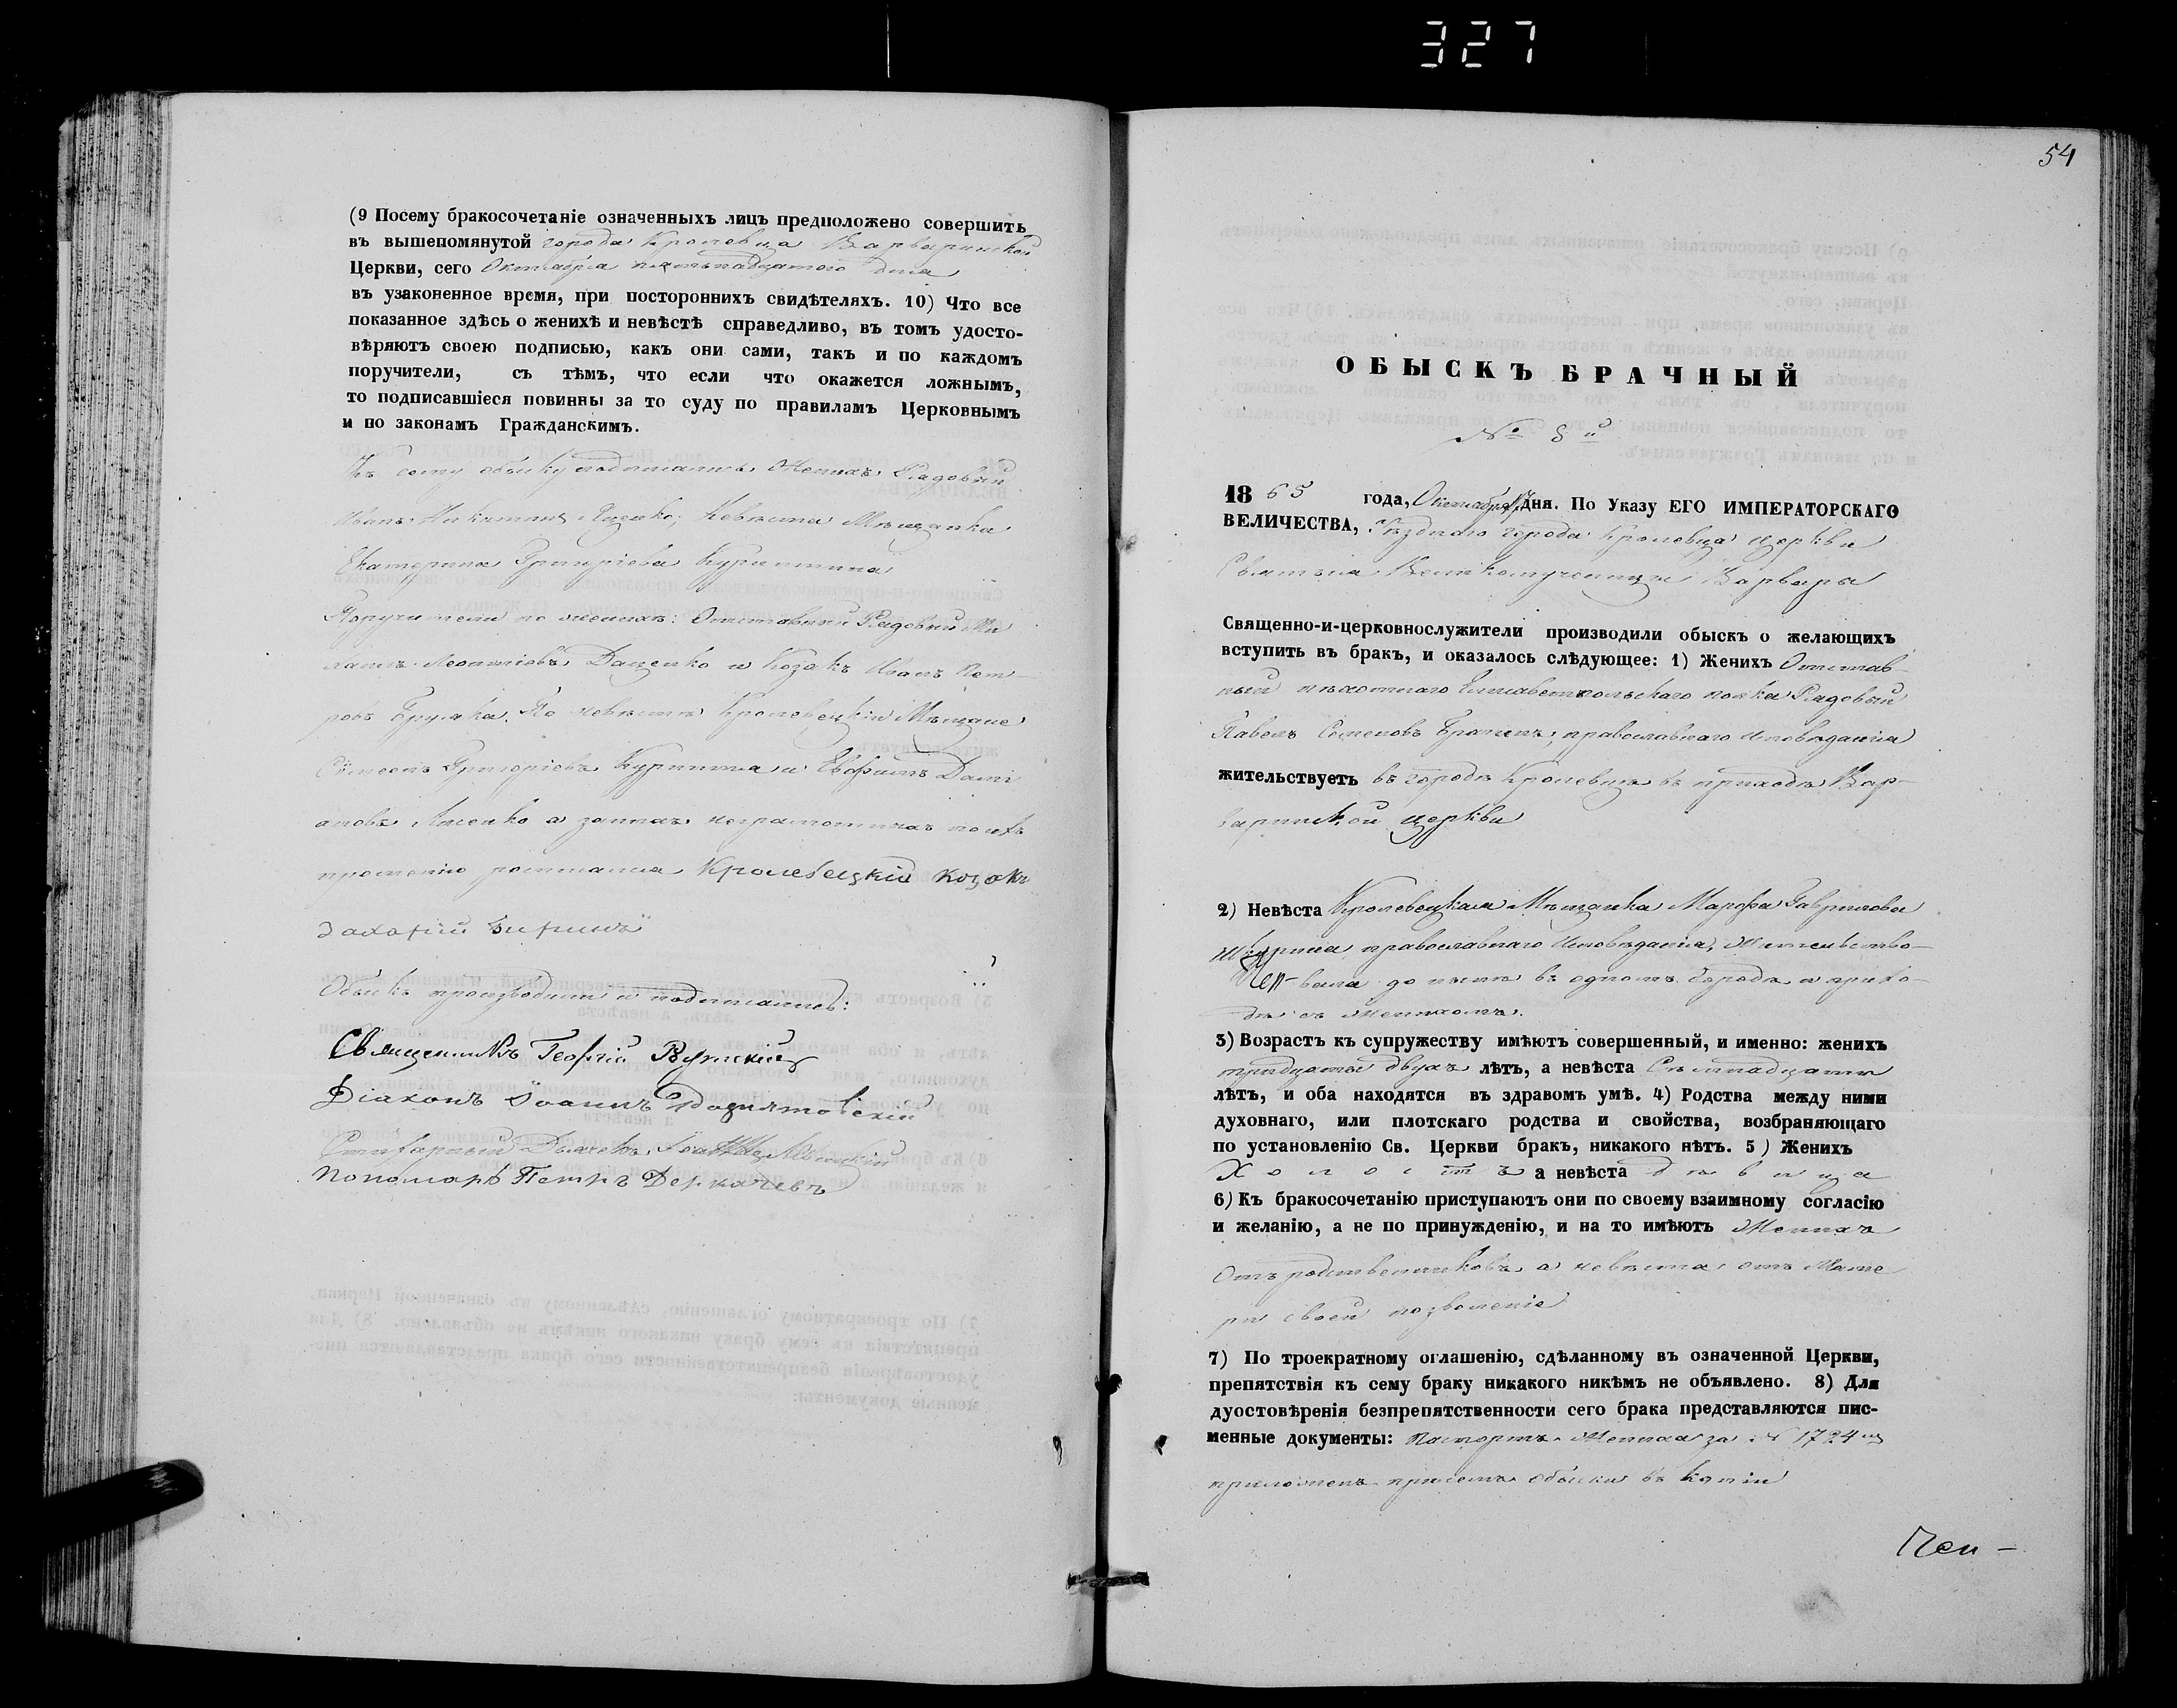 327
(9 Посему бракосочетаніе означенныхъ лицъ предположено совершить
въ вышепомянутой города Кролевца Варваринской
Церкви, сего Октября пятьнадцатого дня
въ узаконенное время, при постороннихъ свидѣтеляхъ. 10) Что все
показанное здѣсь о женихѣ и невѣстѣ справедливо, въ томъ удосто-
вѣряютъ своею подписью, какъ они сами, такъ и по каждомъ
поручители, съ тѣмъ, что если что окажется ложнымъ,
то подписавшіеся повинны за то суду по правиламъ Церковнымъ
и по законамъ Гражданскимъ.
Къ сему обыску подписались Женихъ Рядовый
Иванъ Никитинъ Невѣста Мѣщанка
Екатерина Григоріева Курипкина
Поручители по женихѣ: Отставный Рядовый
Леонтіевъ Даценко и Козакъ Иванъ Пет-
ровъ По невѣстѣ Кролевецкіи Мѣщане
Сѵмеонъ Григоріевъ и Евфимъ Дамі
ановъ а за нихъ неграмотныхъ по ихъ
прошенію росписался Кролевецкій козакъ
Захарій
Обыскъ производили и подписались:
Священникъ Георгій
Діаконъ Іоаннъ
Дьячекъ
Пономарь Петръ Деркачевъ
54
ОБЫСКЪ БРАЧНЫЙ
№ 8й
1865 года, Октября дня. По Указу ЕГО ИМПЕРАТОРСКАГО
ВЕЛИЧЕСТВА, Уѣзднаго города Кролевца церкви
Святыя Великомученицы Варвары
Священно-и-церковнослужители производили обыскъ о желающихъ
вступить въ бракъ, и оказалось слѣдующее: 1) Женихъ Отстав-
ный пѣхотнаго Елисаветпольскаго полка Рядовый
Павелъ Семеновъ православнаго исповѣданія
жительствуетъ въ городѣ Кролевцѣ въ приходѣ Вар-
варинской церкви
2) Невѣста Кролевецкая Мѣщанка Марфа Гаврилова
православнаго Исповѣданія, жительство-
вала до нынѣ въ одномъ городѣ и прихо-
дѣ съ женихомъ.
3) Возрастъ къ супружеству имѣютъ совершенный, и именно: женихъ
тридцати двухъ лѣтъ, а невѣста Семнадцати
лѣтъ, и оба находятся въ здравомъ умѣ. 4) Родства между ними
духовнаго, или плотскаго родства и свойства, возбраняющаго
по установленію Св. Церкви бракъ, никакого нѣтъ. 5) Женихъ
Холостъ а невѣста дѣвица
6) Къ бракосочетанію приступаютъ они по своему взаимному согласію
и желанію, а не по принужденію, и на то имѣютъ Женихъ
Отъ родственниковъ а невѣста отъ Мате
ри своей позволеніе
7) По троекратному оглашенію, сдѣланному въ означенной Церкви,
препятствія къ сему браку никакого никѣмъ не объявлено. 8) Для
дуостовѣренія безпрепятственности сего брака представляются пис-
менные документы: Паспортъ Жениха за № 1724
приложенъ при семъ обыскѣ въ копіи